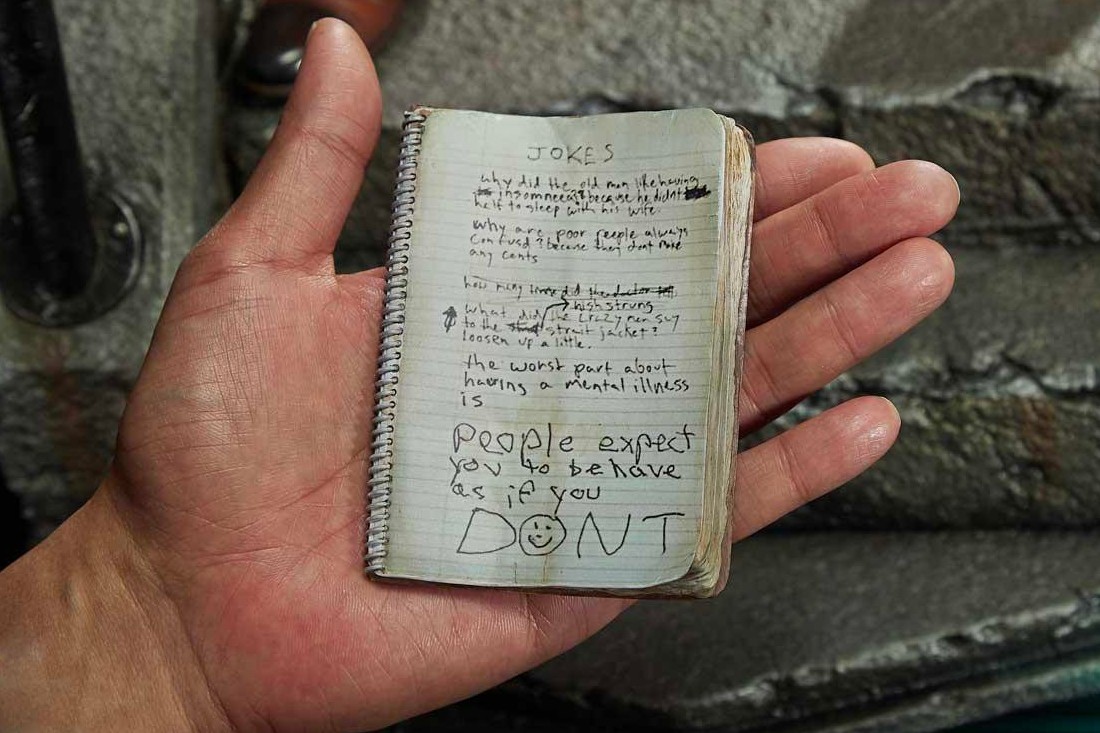 JOKES
why did the old man like having
insomneea? because he didnt
haft to sleep with his wife.
why are poor people always
confusd? because they dont make
any cents
how many did the doctor
high strung
What did the crazy man say
to the strait jacket?
loosen up a little.
the worst part about
having a mental illness
is
People expect
you to behave
as if you
DONT